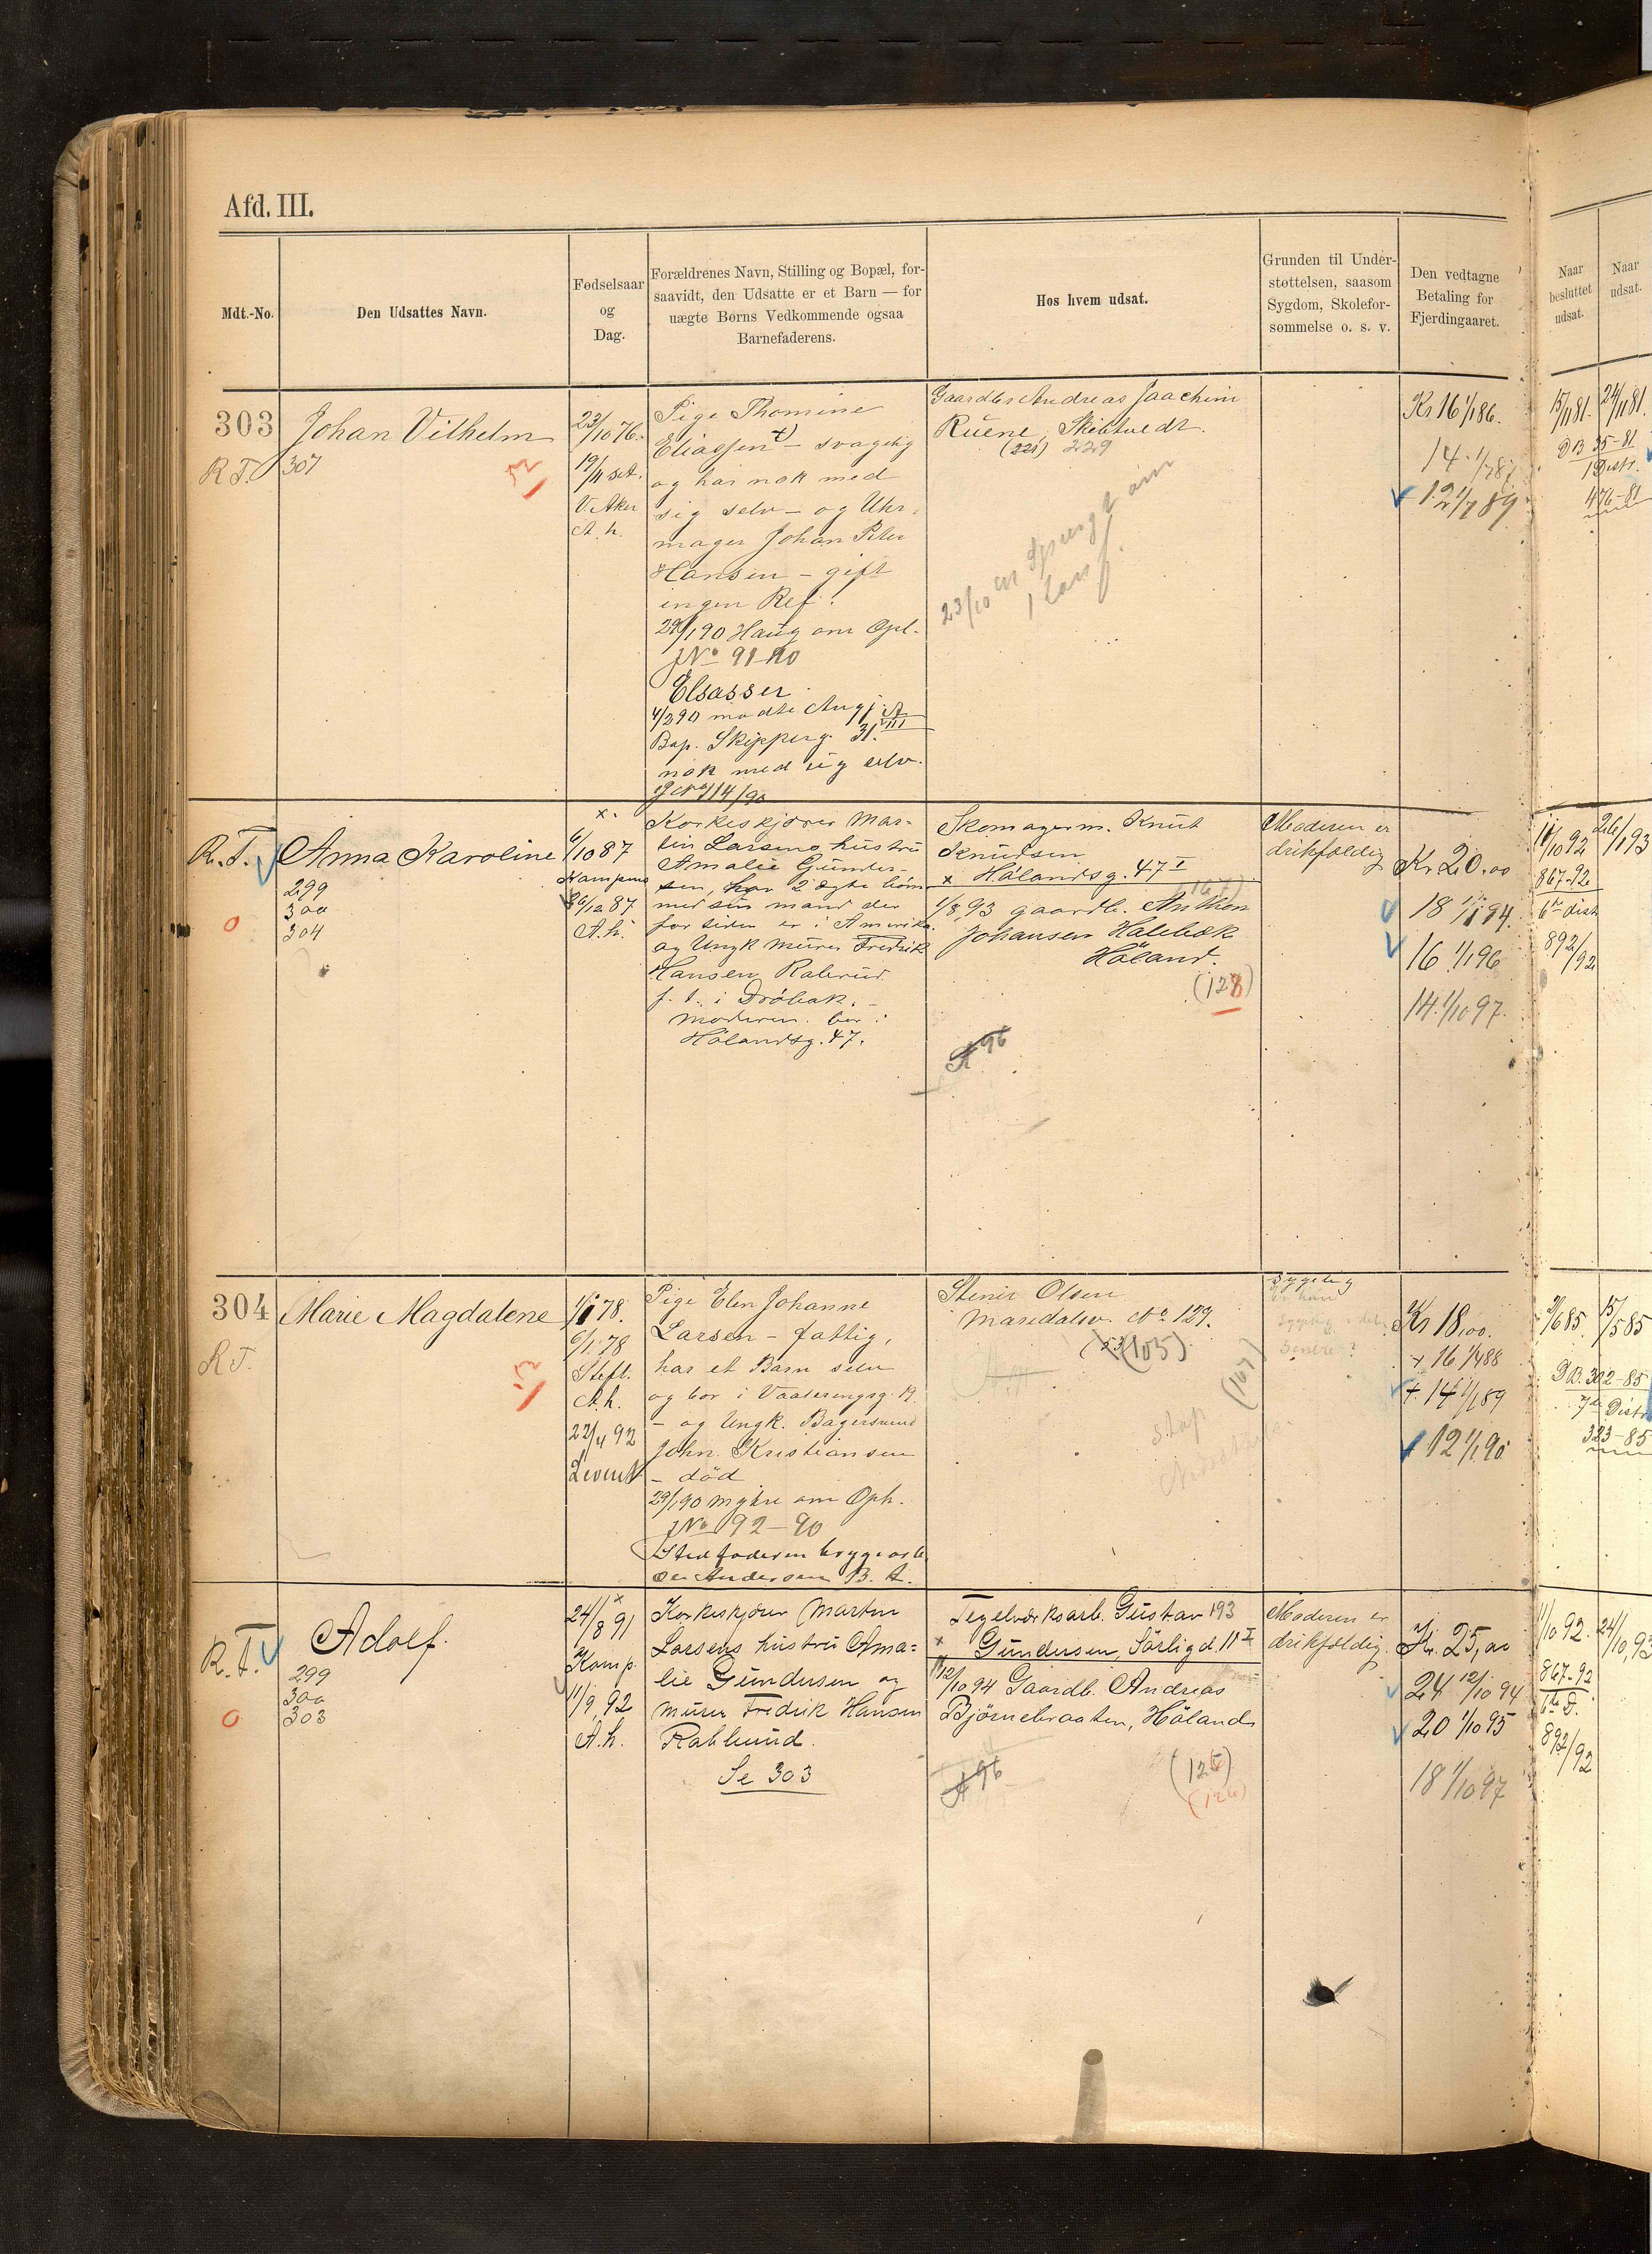 Afd. III.
Mdt.-No.
Den Udsattes Navn.
Fødselsaar
og
Dag.
Forældrenes Navn, Stilling og Bopæl, for-
saavidt, den Udsatte er et Barn — for
uægte Børns Vedkommende ogsaa
Barnefaderens.
Hos hvem udsat.
Grunden til Under-
støttelsen, saasom
Sygdom, Skolefor-
sømmelse o. s. v.
Den vedtagne
Betaling for
Fjerdingaaret.
Naar
besluttet
udsat.
Naar
udsat.
303
R.T.
Johan Vilhelm
307
23/10 76.
19/11
V. Aker
A. h.
Pige Thomine
Eliassen - svagelig
og har nok med
sig selv - og Uhr-
mager Johan Peter
Hansen - gift
ingen Ref.
29/1 90 Haug om Opl.
J No 91-90
Elsasser
4/2 90 mødte Ang
Bop. Skipperg. 31.
nok med sig selv.
114/90
Gaardbr Andreas Joachim
Ruene, Skibtvedt.
(221) 229
23/10
Kr 16 1/1 86.
14. 1/7 87
12 1/7 89
15/11 81.
24/11 81.
DB 35-81
1 Distr.
476-81
R.T.
Anna Karoline
299
300
304
x.
6/10 87
Kampens
26/12 87
A.h.
Korkeskjærer Mar-
tin Larsens hustru
Amalie Gunder-
sen, har 2 ægte børn
med sin mand der
for tiden er i Amerika
og Ungk murer Fredrik
Hansen Rabrud
f. t. i Drøbak. -
moderen bor i
Hölandsg. 47.
Skomagerm. Knut
Knudsen
x Hölandsg. 47 I
(167)
1/8 93 gaardb. Anthon
Johansen Halebæk
Höland.
(128)
A 96
Moderen er
drikfældig
Kr. 20.00
18 1/1 94.
16 1/1 96
14. 1/10 97.
11/10 92
26/1 93
867-92
6te dist
892/92
304
R.T.
Marie Magdalene
1/1 78.
6/1 78
Stift.
A.h.
22/4 92
Pige Elen Johanne
Larsen - fattig,
har et Barn selv
og bor i Vaalerengsg. 19.
- og Ungk. Bagersvend
John Kristiansen
- död
29/1 90 Myhre om Oph.
J No 92-90
Stedfaderen bryggearb.
Andersen B. A.
Stener Olsen
Maridalsv. No 129.
(105)
(107)
Sygelig
Senere ?
Kr 18,00.
+ 16 1/4 88
+ 14 1/1 89
12 1/1 90
15/5 85
DB. 302-85
7de Distr
323-85
R.T.
Adolf.
299
300
303
24/8 91
Kamp.
11/9 92
A.h.
Korkeskjærer Martin
Larsens hustru Ama-
lie Gundersen og
murer Fredrik Hansen
Rabbrud.
Se 303
Tegelværksarb. Gustav 193
x Gundersen, Sörligd. 11 I
12/10 94 Gaardb. Andreas
Björnebraaten, Höland
A 96
(126)
(126)
Moderen er
drikfældig.
Kr. 25,00
24 12/10 94
20 1/10 95
18 1/10 97
11/10 92.
24/10 93
867-92
6te D.
892/92